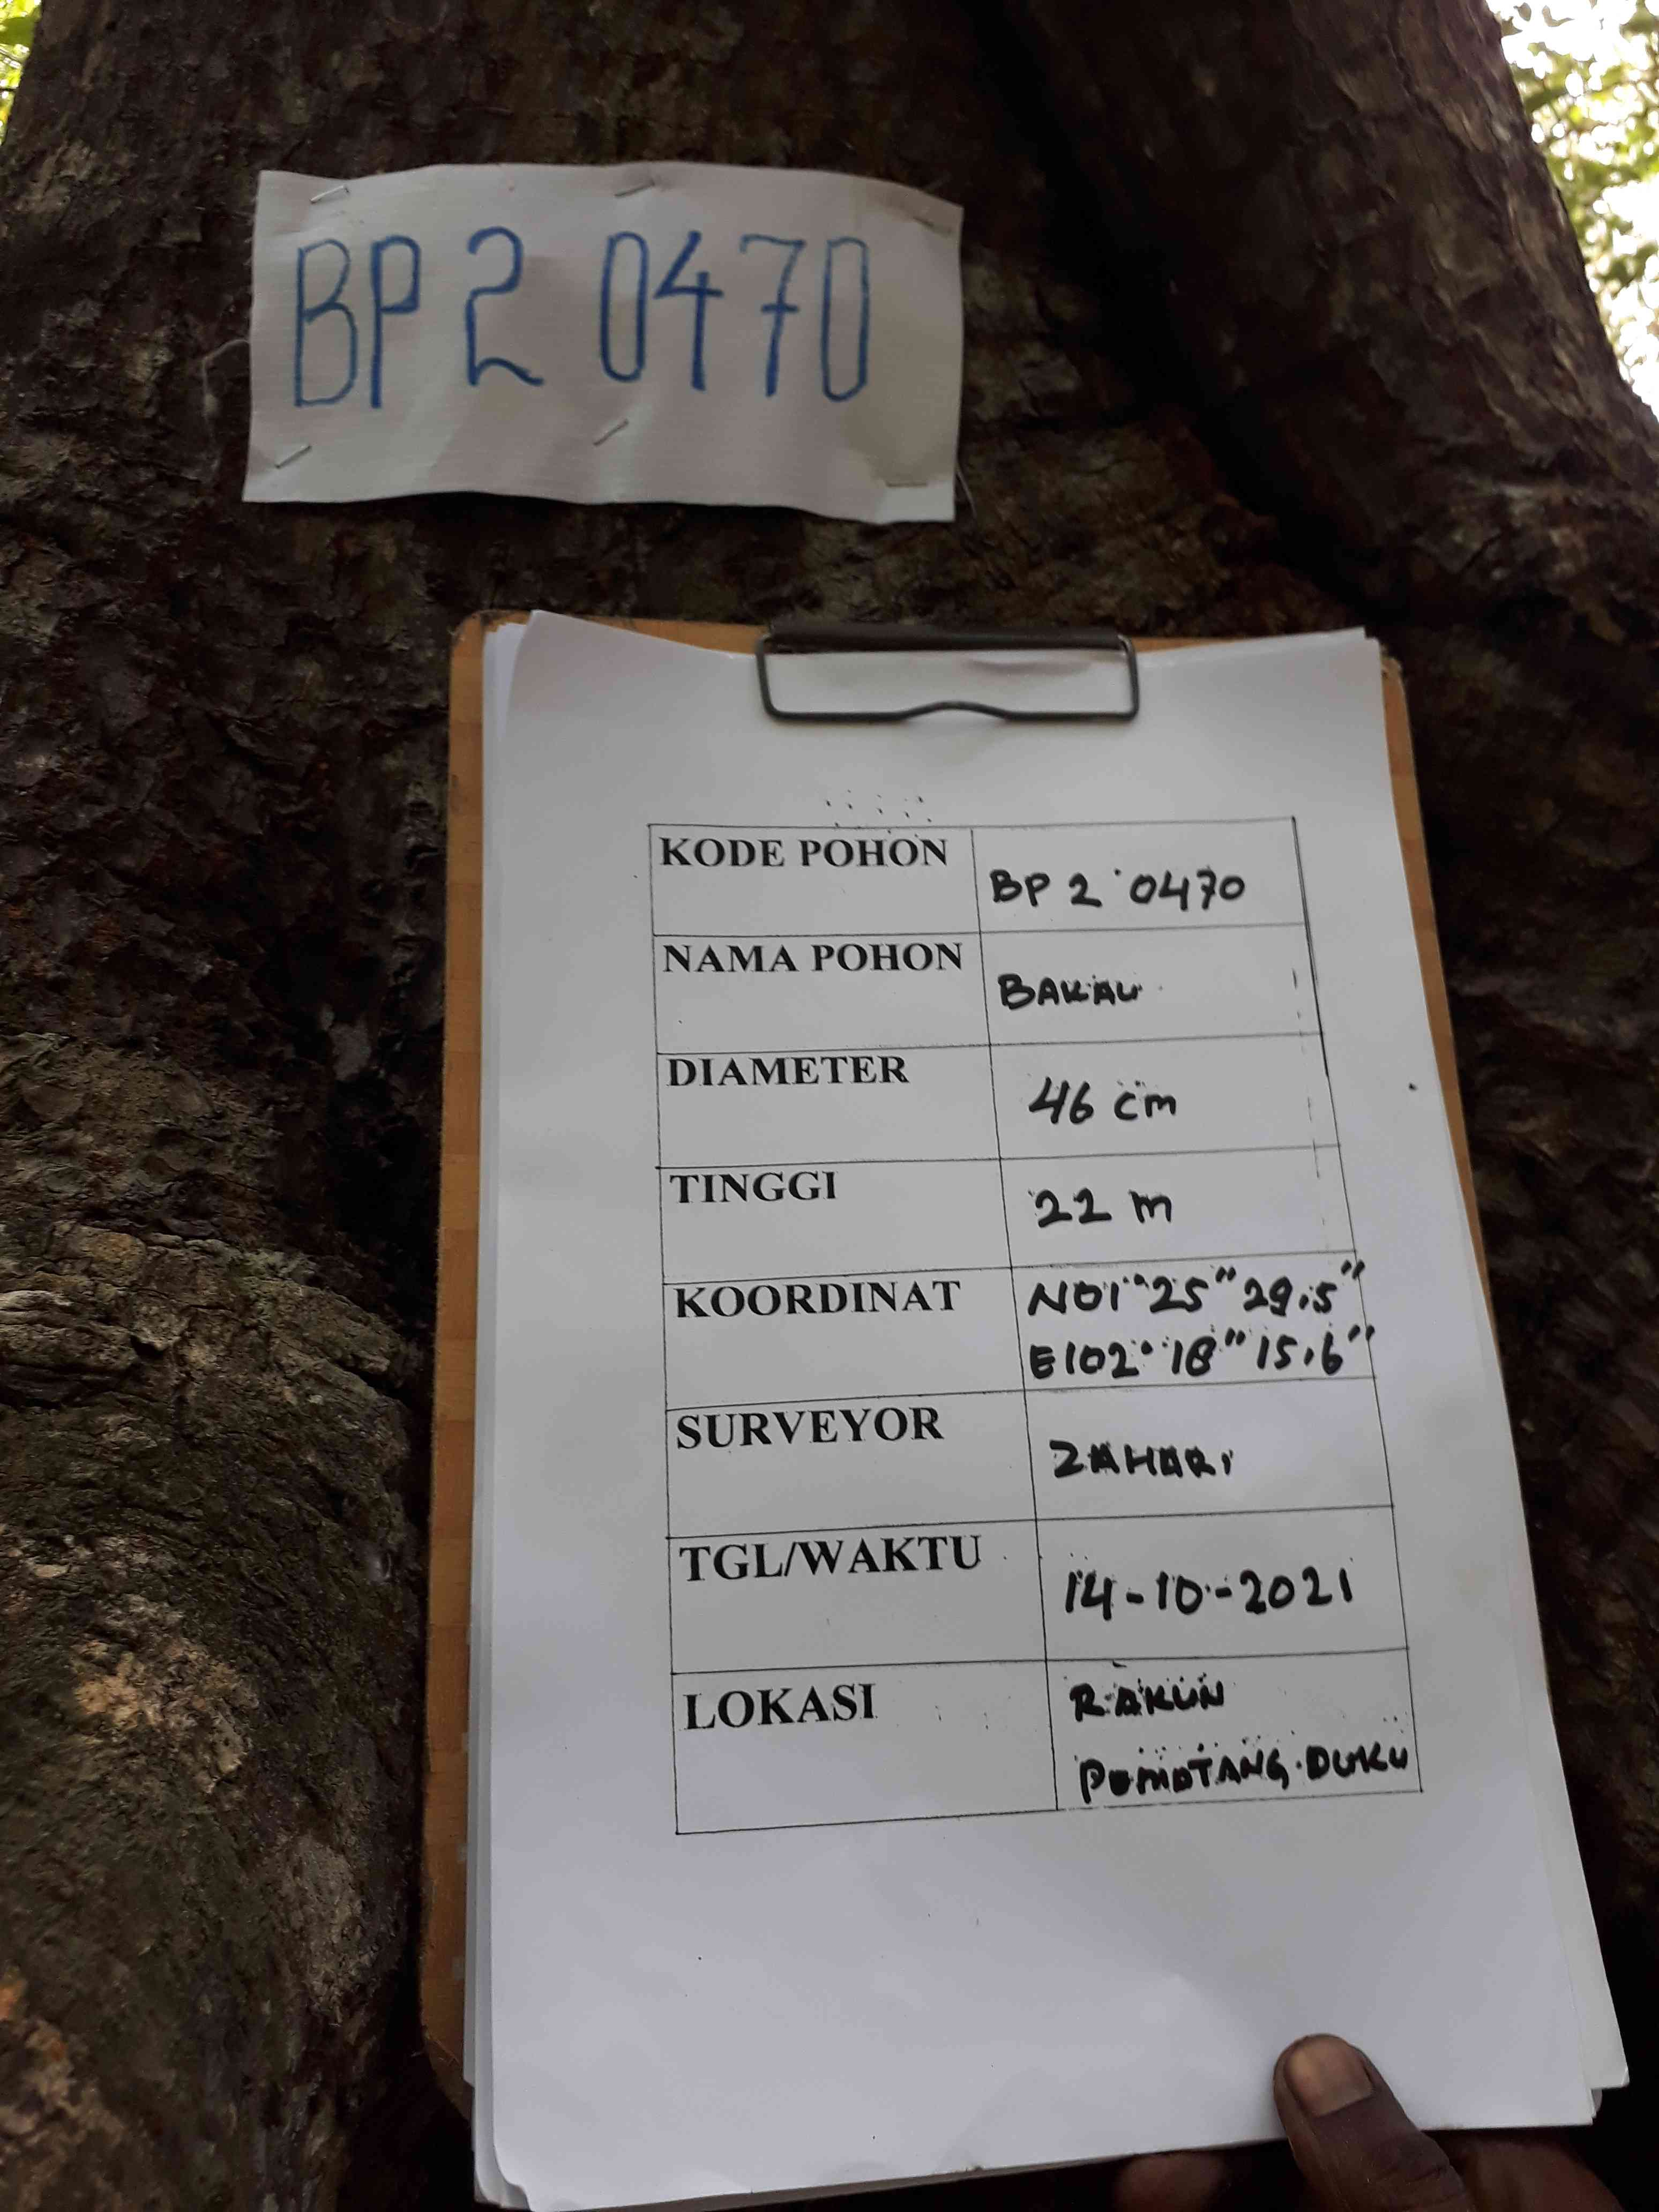 BP 2 0470
KODE POHON BP 2 0470
NAMA POHON BAKAU
DIAMETER 46 cm
TINGGI 22 m
KOORDINAT N01°25"29.5"
E102°18"15.6"
SURVEYOR ZAHARI
TGL/WAKTU 14-10-2021
LOKASI RAKUN
PEMATANG DUKU